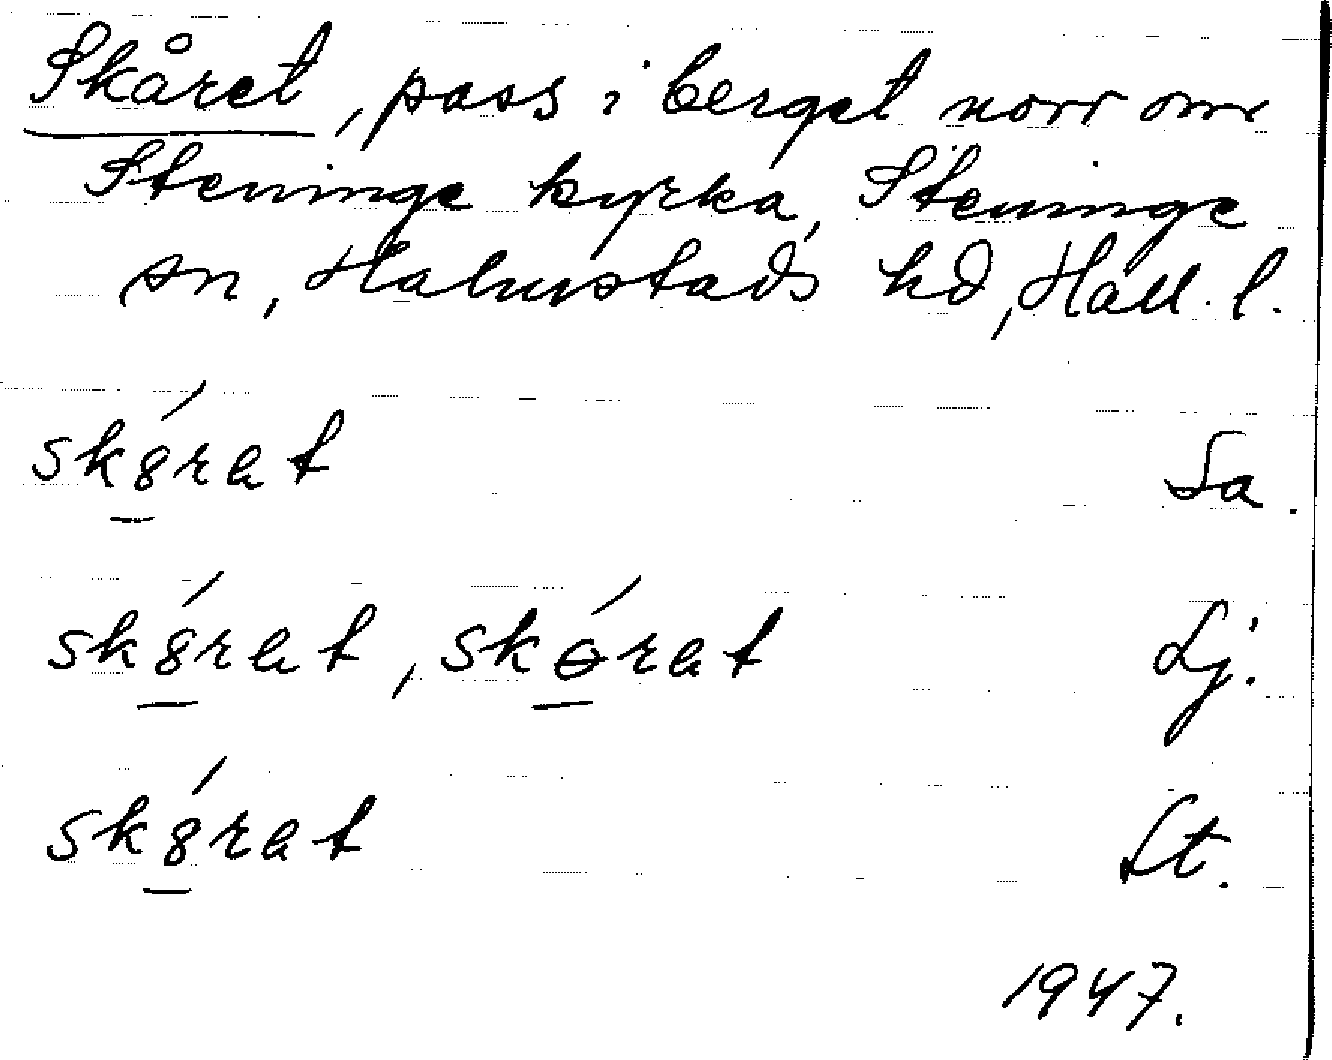 Skåret, pass i berget norr om
Steninge kyrka, Steninge
sn, Halmstads hd, Hall. l.
sk8́rat Sa.
sk8́rat, skɵ́rat Lj.
sk8́rat St.
1947.